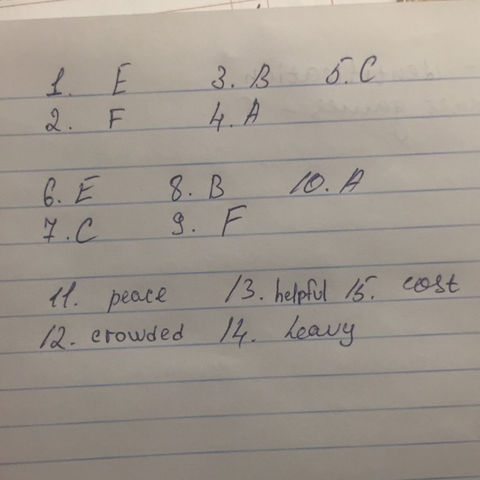 1. E 3. B 5. C
2. F 4. A
6. E 8. B 10. A
7. C 9. F
11. peace 13. helpful 15. cost
12. crowded 14. heavy